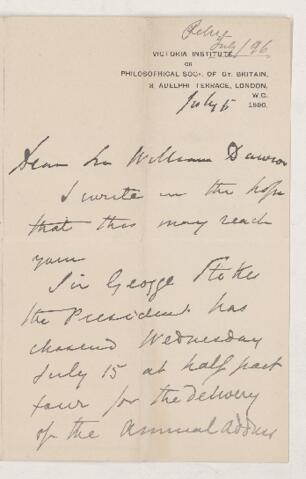 July/96
VICTORIA INSTITUTE,
OR
PHILOSOPHICAL SOCY. OF GT. BRITAIN,
8, ADELPHI TERRACE, LONDON,
W.C.
July 5 1896.
Dear Sir William Dawson
I write in the hope
that this may reach
you
Sir George Stokes
the President has
Wednesday
July 15 at half past
four for the delivery
of the Annual Address